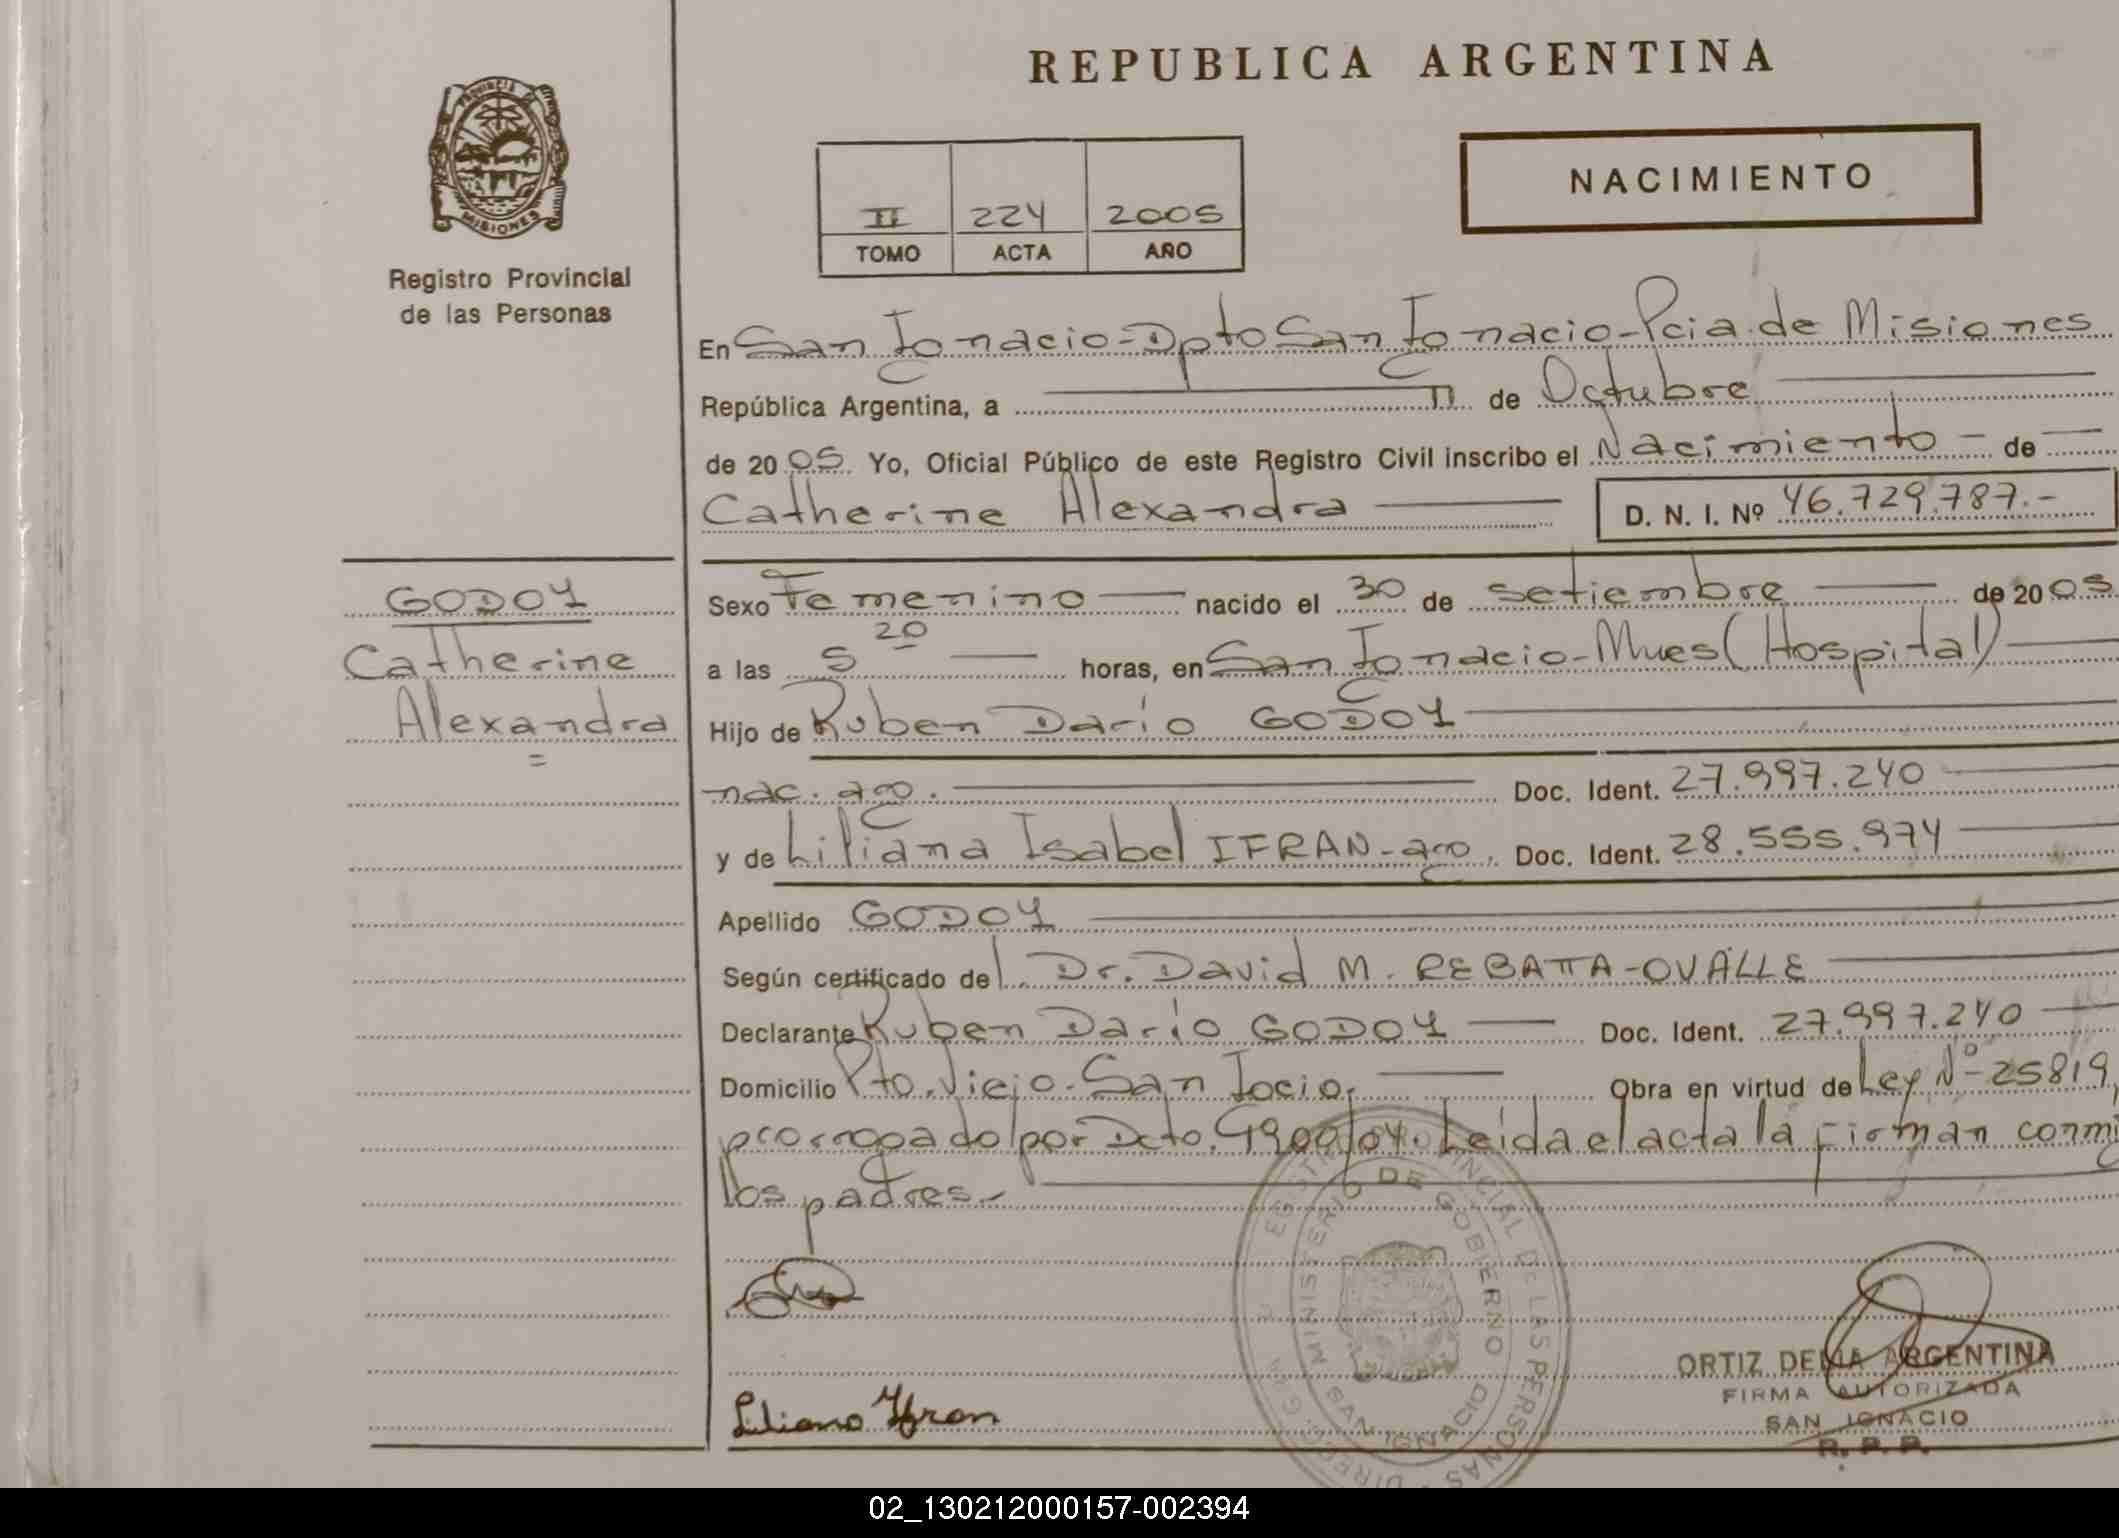 REPUBLICA ARGENTINA
PROVINCIA DE
MISIONES
Registro Provincial
de las Personas
NACIMIENTO
II 224 2005
TOMO ACTA AÑO
En San Ignacio-Dpto San Ignacio-Pcia.de Misiones
República Argentina, a 11 de Octubre
de 2005. Yo, Oficial Público de este Registro Civil inscribo el Nacimiento - de
Catherine Alexandra D. N. I. Nº 46.729.787.-
GODOY
Catherine
Alexandra
=
Sexo Femenino nacido el 30 de setiembre de 2005
a las 5 20 horas, en San Ignacio-Mnes (Hospital)
Hijo de Ruben Darío GODOY
nac. arg. Doc. Ident. 27.997.240
y de Liliana Isabel IFRAN-arg. Doc. Ident. 28.555.974
Apellido GODOY
Según certificado del. Dr. David M. REBATTA-OVALLE
Declarante Ruben Darío GODOY Doc. Ident. 27.997.240
Domicilio Pto.Viejo.San Igcio. Obra en virtud de Ley Nº 25819,
prorrogado por Dcto. Leída el acta la firman conmi
los padres.-
Liliana Ifran
REGISTRO PROVINCIAL DE LAS PERSONAS
MINISTERIO DE GOBIERNO
SAN IGNACIO
ORTIZ DELIA ARGENTINA
FIRMA AUTORIZADA
SAN IGNACIO
R. P. P.
02_130212000157-002394